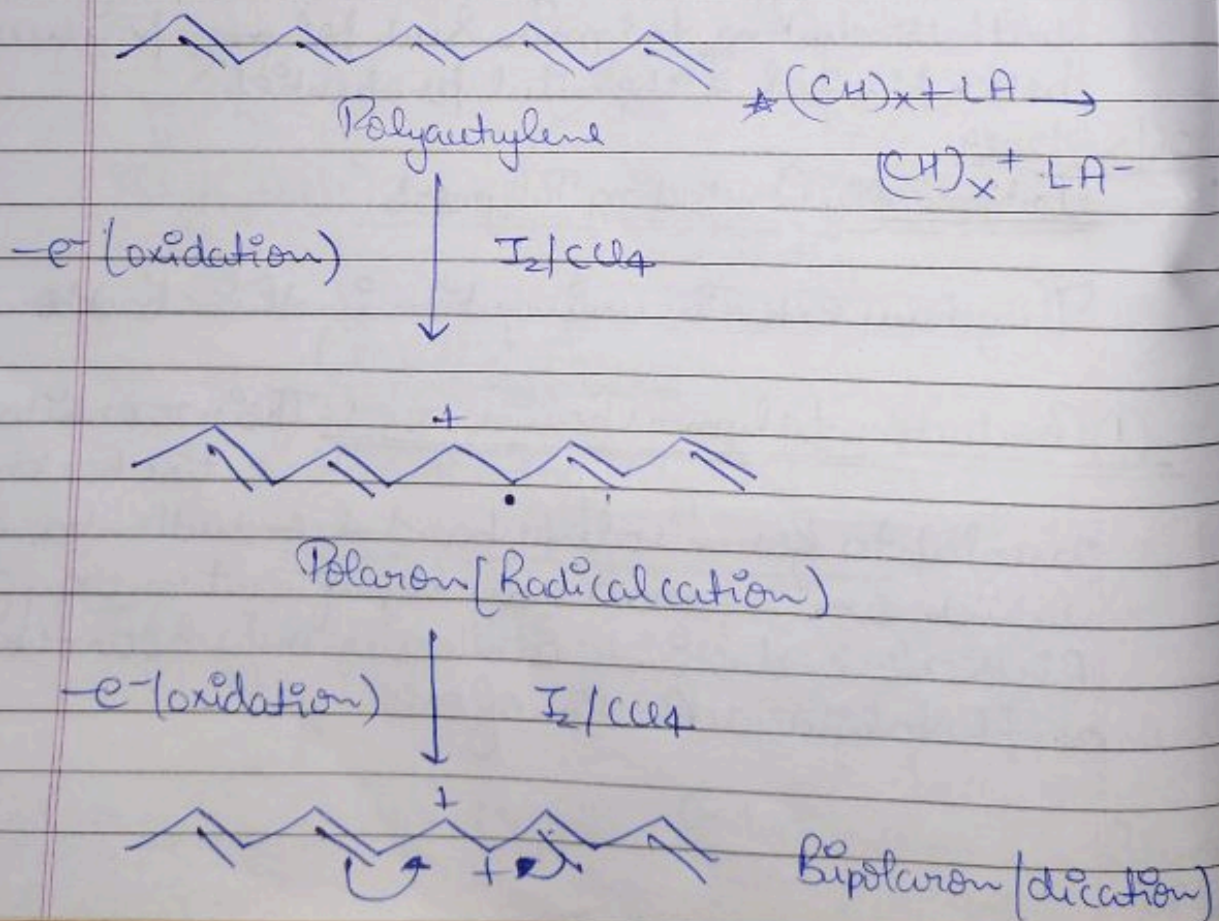 Polyacetylene
* (CH)x + LA →
(CH)x+ LA-
-e- (oxidation) I2/CCl4
+
•
Polaron [Radical cation)
-e- (oxidation) I2/CCl4
+
+
Bipolaron (dication)